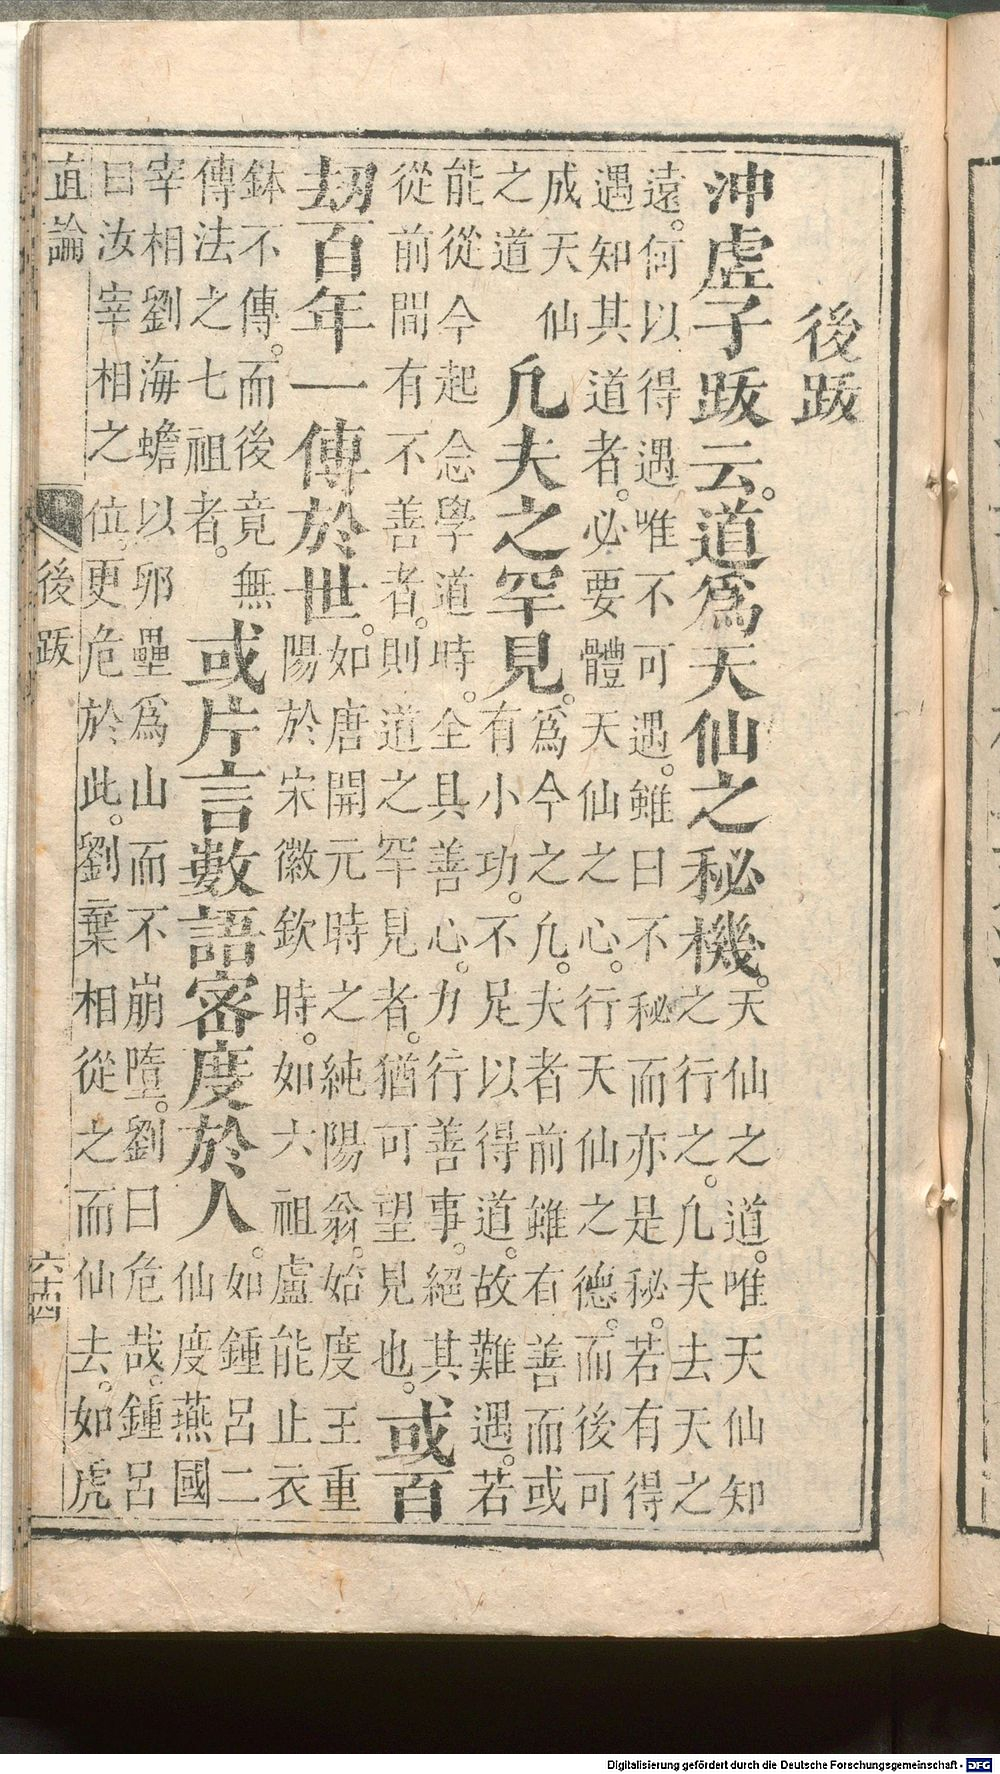 後跋
沖虛子跋云。道爲天仙之秘機。
天仙之道。唯天仙知
之行之。凡夫去天之
遠。何以得遇唯不可遇。雖曰不秘而亦是秘。若有得
遇知其道者。必要體天仙之心。行天仙之德。而後可
成天仙
之道
凡夫之罕見。
爲今之凡。夫者前雖有善而或
有小功。不足以得道。故難遇。若
能從今起念學道時。全具善心。力行善事。絕其
從前間有不善者。則道之罕見者。猶可望見也。
或百
劫百年一傳於世。
如唐開元時之純陽翁。始度王重
陽於宋徽欽時。如六祖盧能止衣
鉢不傳。而後竟無
傳法之七祖者。
或片言數語密度於人。
如鍾呂二
仙度燕國
宰相劉海蟾以卵壘爲山而不崩墮。劉曰危哉。鍾呂
曰汝宰相之位。更危於此。劉棄相從之而仙去。如虎
直論
後跋
六十四
Digitalisierung gefördert durch die Deutsche Forschungsgemeinschaft - DFG